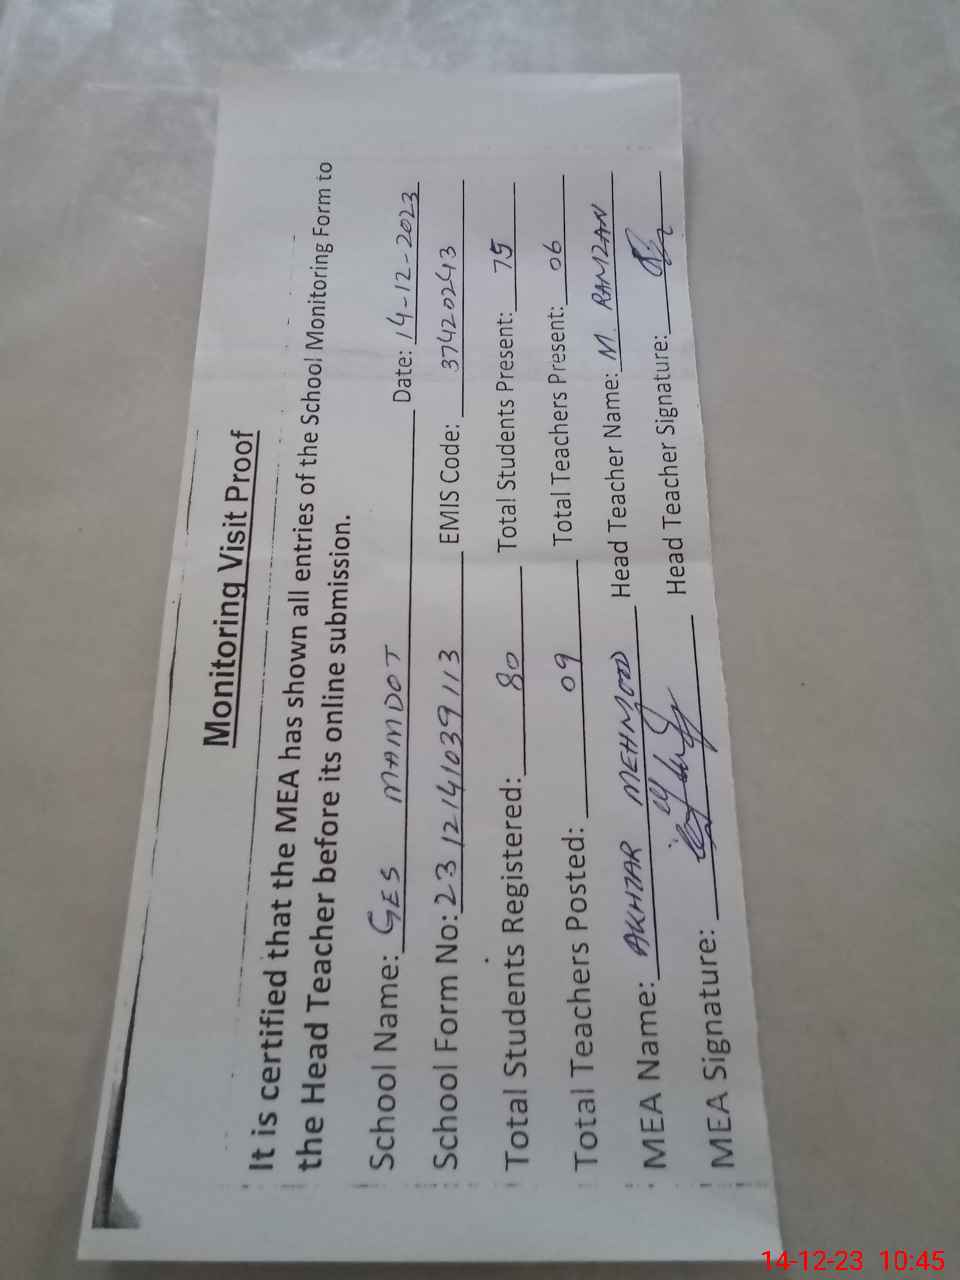 Monitoring Visit Proof
It is certified that the MEA has shown all entries of the School Monitoring Form to
the Head Teacher before its online submission.
School Name: GES MAMDOT Date: 14-12-2023
School Form No: 2312141039113 EMIS Code: 37420243
Total Students Registered: 80 Total Students Present: 75
Total Teachers Posted: 09 Total Teachers Present: 06
MEA Name: AKHTAR MEHMOOD Head Teacher Name: M. RAMZAN
MEA Signature: Head Teacher Signature:
14-12-23 10:45